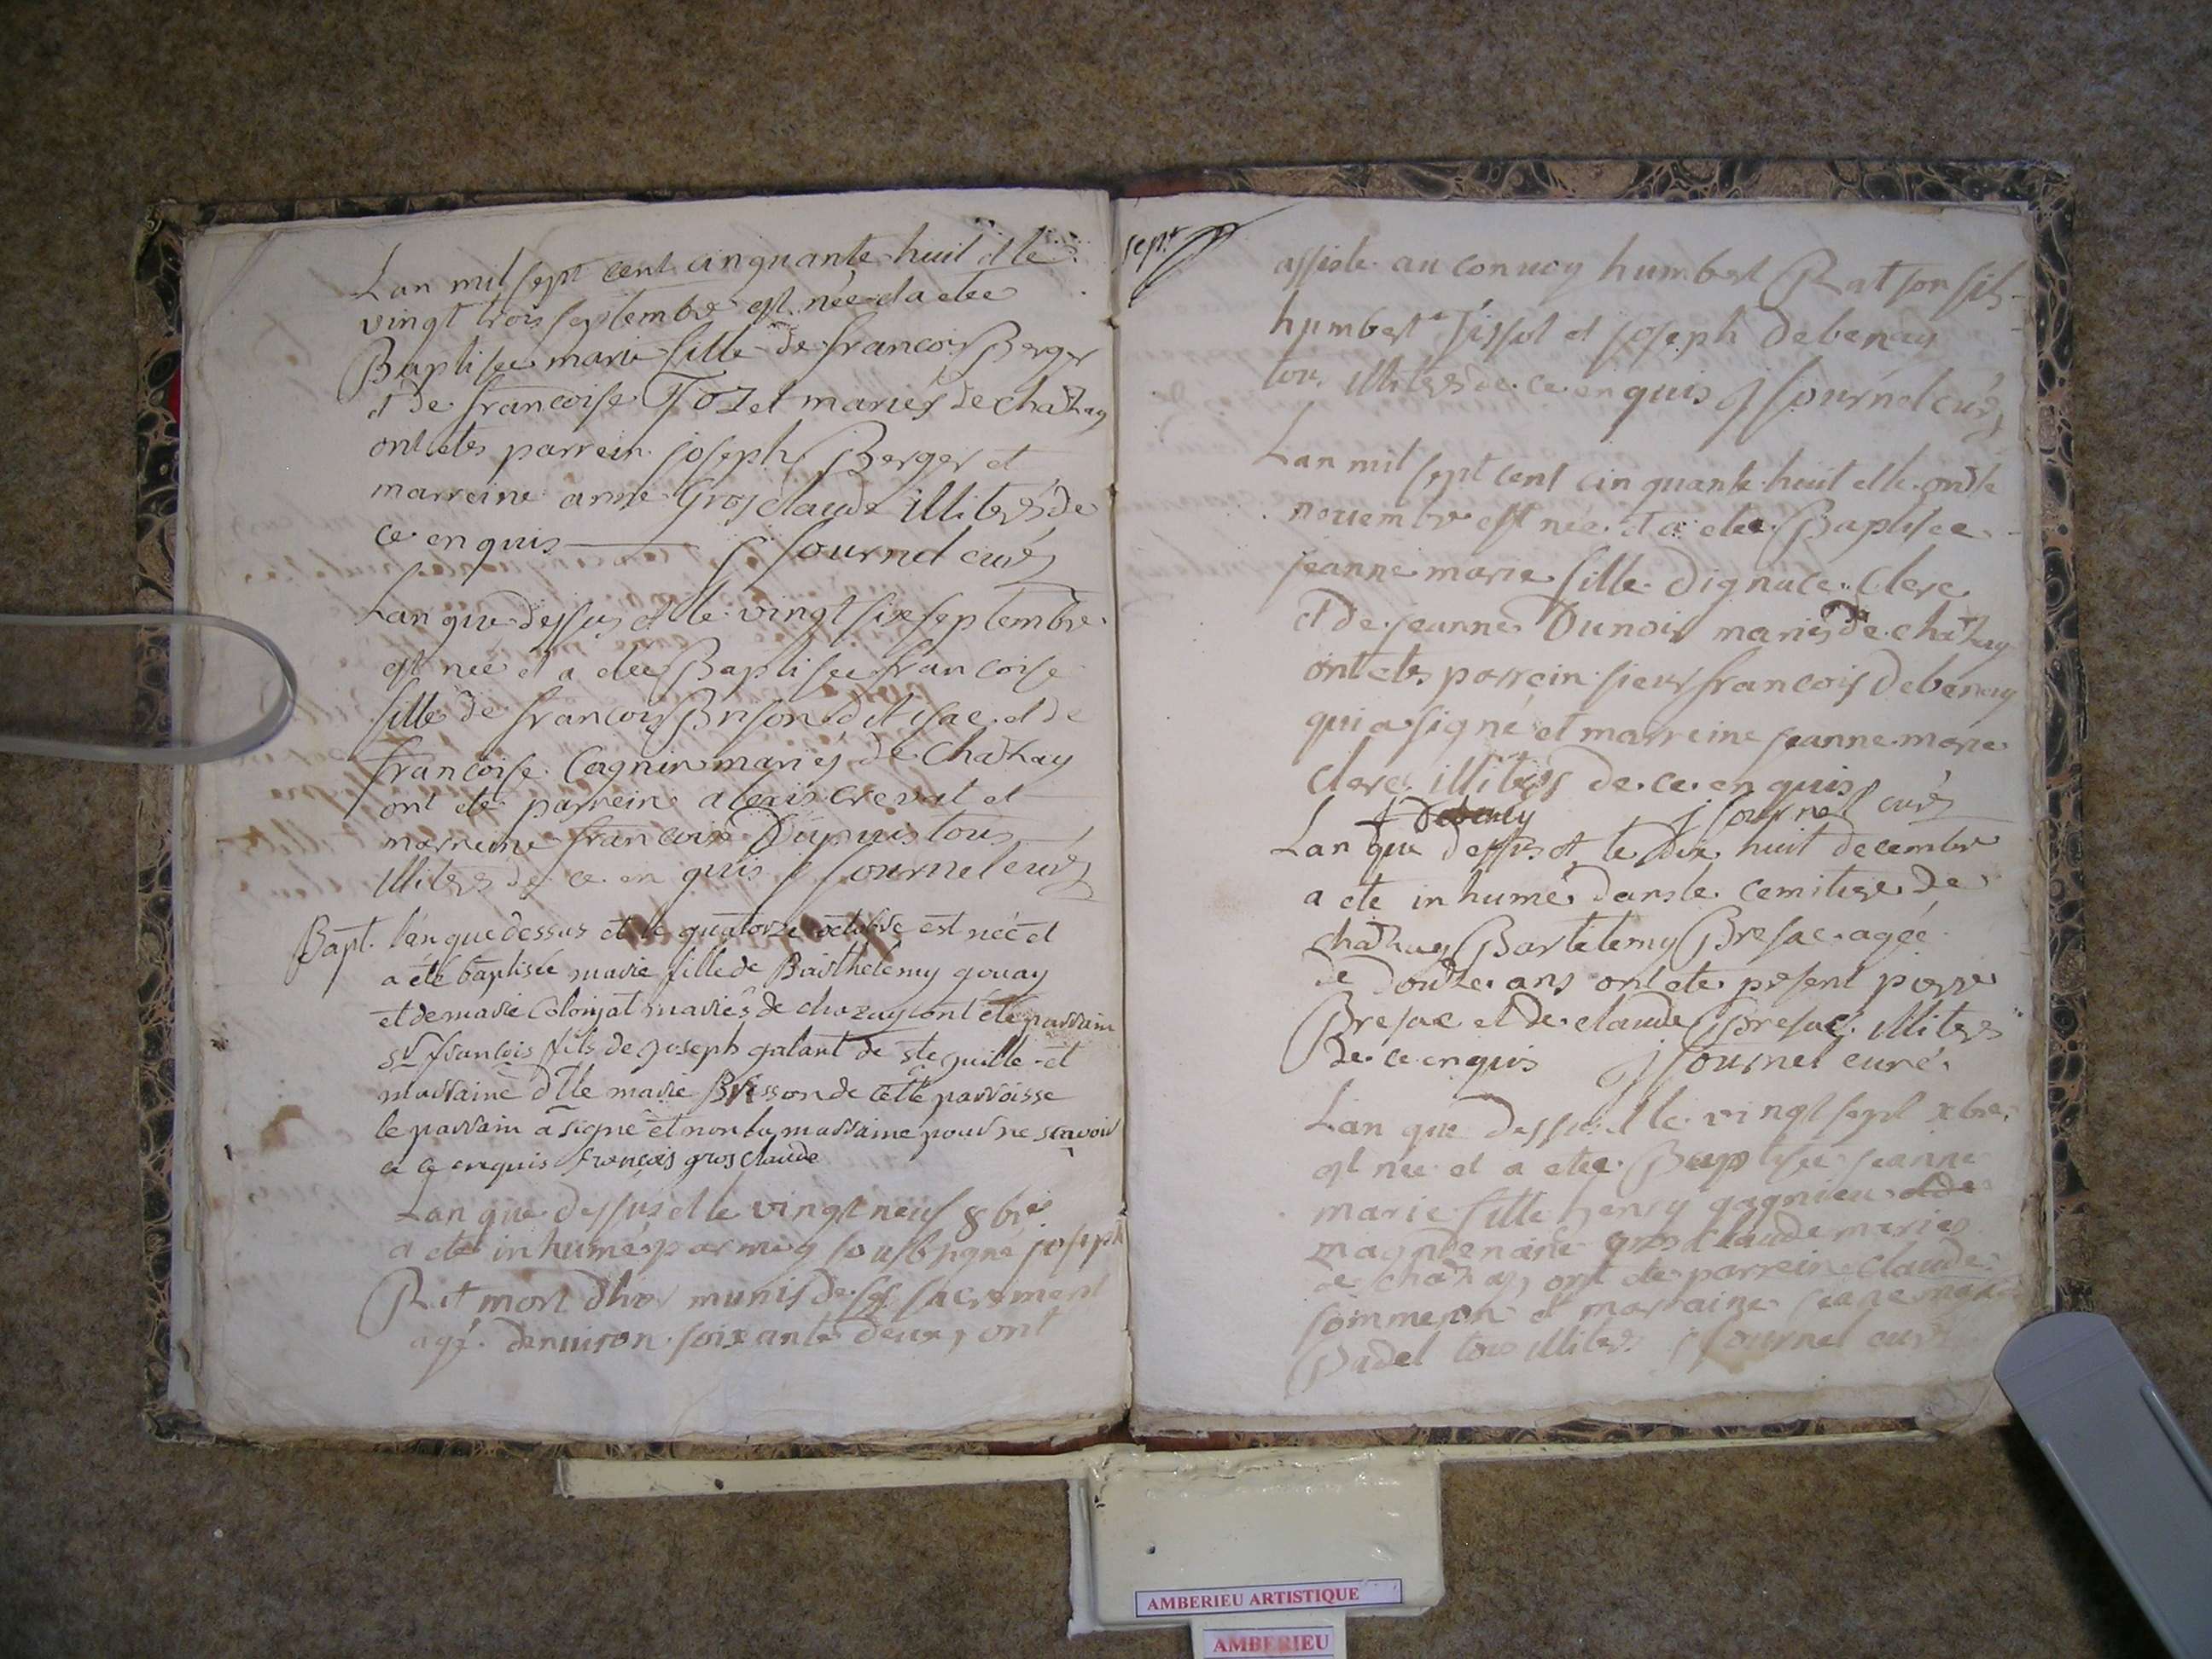 Lan mil sept cent cinquante huit et le
vingt trois septembre est née et a etee
Baptisee marie fille de francois Berger
et de francoise Tozet mariés de chazay
ont etes parrein joseph Berger et
marreine anne Grosclaude illiterés de
ce enquis j fournel curé
Lan que dessus et le vingt six septembre
est née et a etee Baptisee francoise
fille de francois Brison dit isac et de
francoise Cagnin mariés de Chazay
ont ete parrein alexis crevat et
marreine francoise Dupuis tous
illiteres de ce en quis j fournel curé
Bapt. l'an que dessus et le quatorze octobre est née et
a été baptisée marie fille de Barthelemy gouay
et de marie Colomjat mariés de chazay ont été parrain
sr francois fils de joseph galant de ste julle et
marraine dlle marie Brisson de cette parroisse
le parrain a signé et non la marraine pour ne scavoir
a ce enquis françois grosclaude
Lan que dessus et le vingt neuf 8bre
a ete inhumé par moy soussigné joseph
Rat mort dhier munis de ses sacrement
agé denviron soixante deux, ont
sept
assiste au convoy humbert Rat son fils
humbert Tissot et joseph Debenay
tou. illiteres de ce enquis j fournel curé
Lan mil sept cent cinquante huit et le onze
novembre est née et a etee Baptisee
jeanne marie fille dignace Clerc
et de jeanne Dunois mariés de chazay
ont etes parrein sieur francois debenay
qui a signé et marreine jeanne marie
clerc illiterés de ce en quis
f Debeney j fournel curé
Lan que dessus et le dix huit decembre
a ete inhumé dans le cemitiere de
chazay Bartelemy Bresac agée
de douze ans ont ete present pierre
Bresac et de claude Bresac illiteres
de ce enquis j fournel curé
Lan que dessus et le vingt sept xbre
est née et a etee Baptisee jeanne
marie fille henry gagnieu et de
magdelaine gros claude maries
de chazay ont ete parrein claude
sommeron et marraine jeane marie
Pidel tous illiteres j fournel curé
AMBERIEU ARTISTIQUE
AMBERIEU